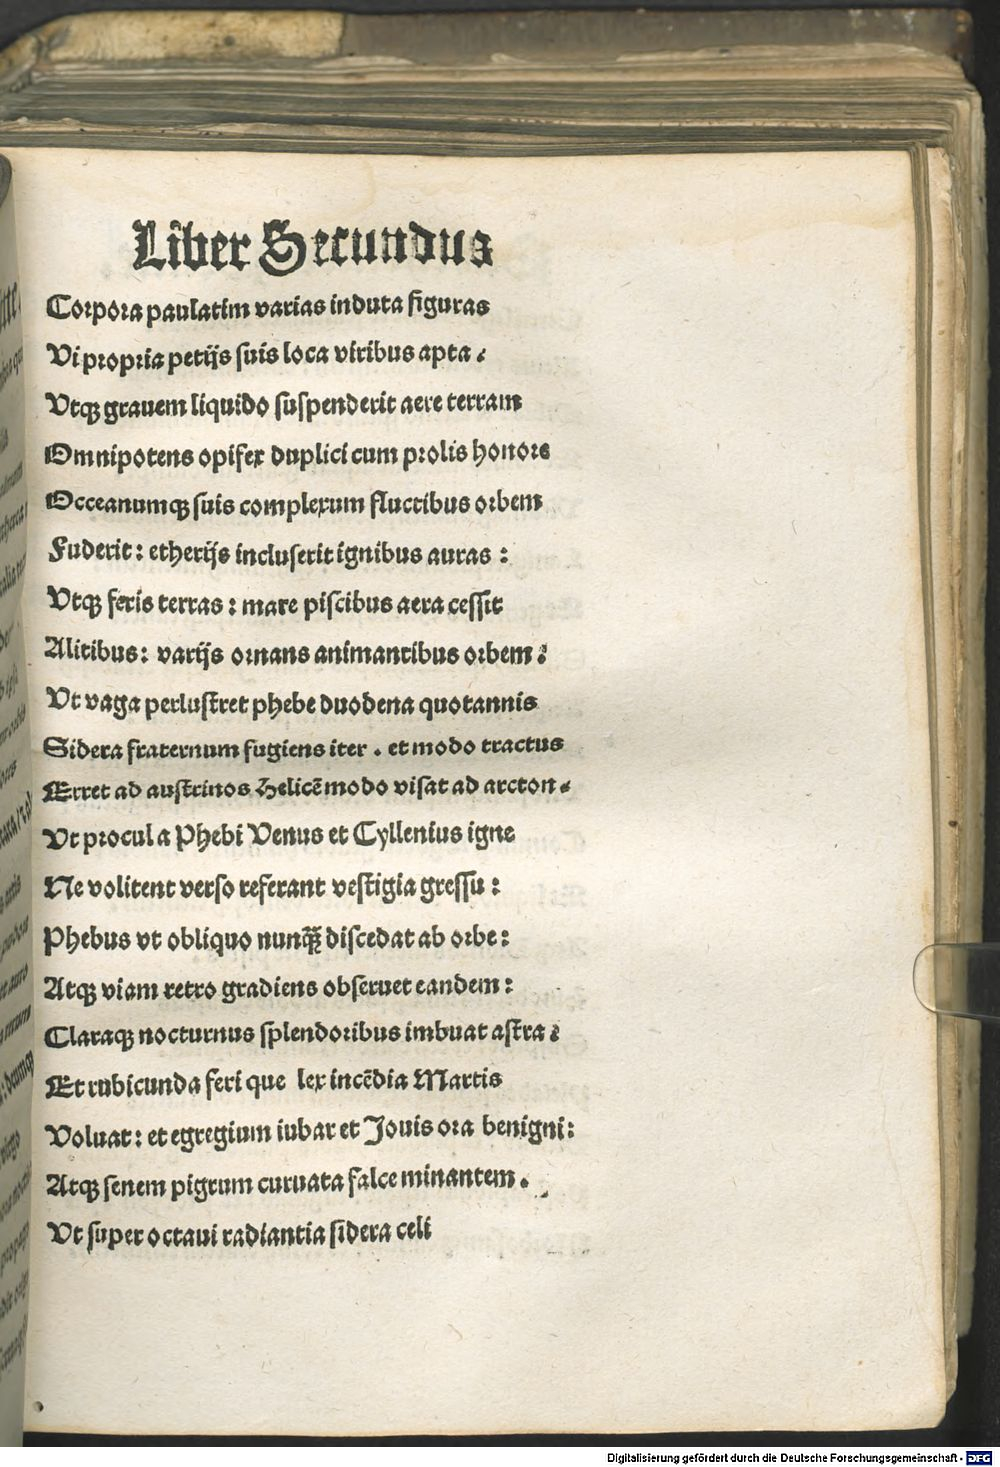 Liber Secundus
Corpora paulatim varias induta figuras
Vi propria petijs suis loca viribus apta .
Vtqꝫ grauem liquido suspenderit aere terram
Omnipotens opifex duplici cum prolis honore
Occeanumqꝫ suis complexum fluctibus orbem
Fuderit : etherijs incluserit ignibus auras :
Vtqꝫ feris terras : mare piscibus aera cessit
Alitibus : varijs ornans animantibus orbem :
Vt vaga perlustret phebe duodena quotannis
Sidera fraternum fugiens iter . et modo tractus
Erret ad austrinos Helicē modo visat ad arcton .
Vt procul a Phebi Venus et Cyllenius igne
Ne volitent verso referant vestigia gressu :
Phebus vt obliquo nunqꝫ̄ discedat ab orbe :
Atqꝫ viam retro gradiens obseruet eandem :
Claraqꝫ nocturnus splendoribus imbuat astra :
Et rubicunda feri que lex incēdia Martis
Voluat : et egregium iubar et Jouis ora benigni :
Atqꝫ senem pigrum curuata falce minantem .
Vt super octaui radiantia sidera celi
Digitalisierung gefördert durch die Deutsche Forschungsgemeinschaft - DFG